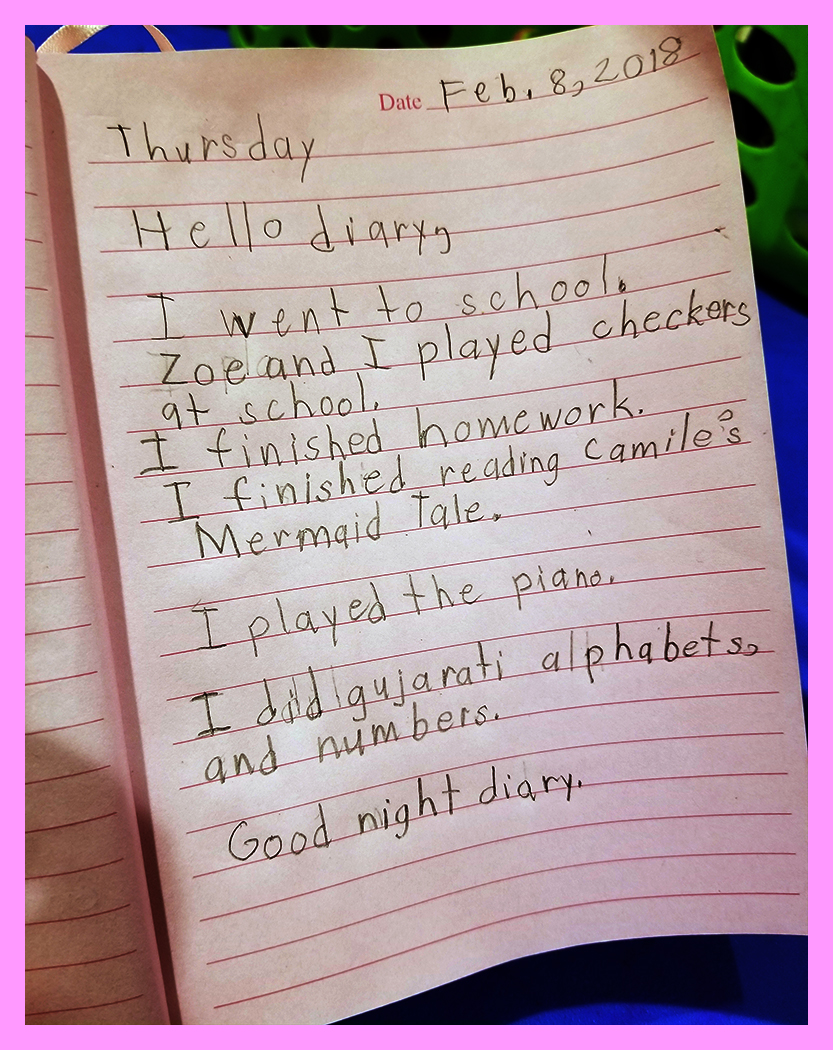 Date Feb. 8, 2018
Thursday
Hello diary,
I went to school.
Zoe and I played checkers
at school.
I finished homework.
I finished reading Camile's
Mermaid Tale.
I played the piano.
I did gujarati alphabets,
and numbers.
Good night diary.